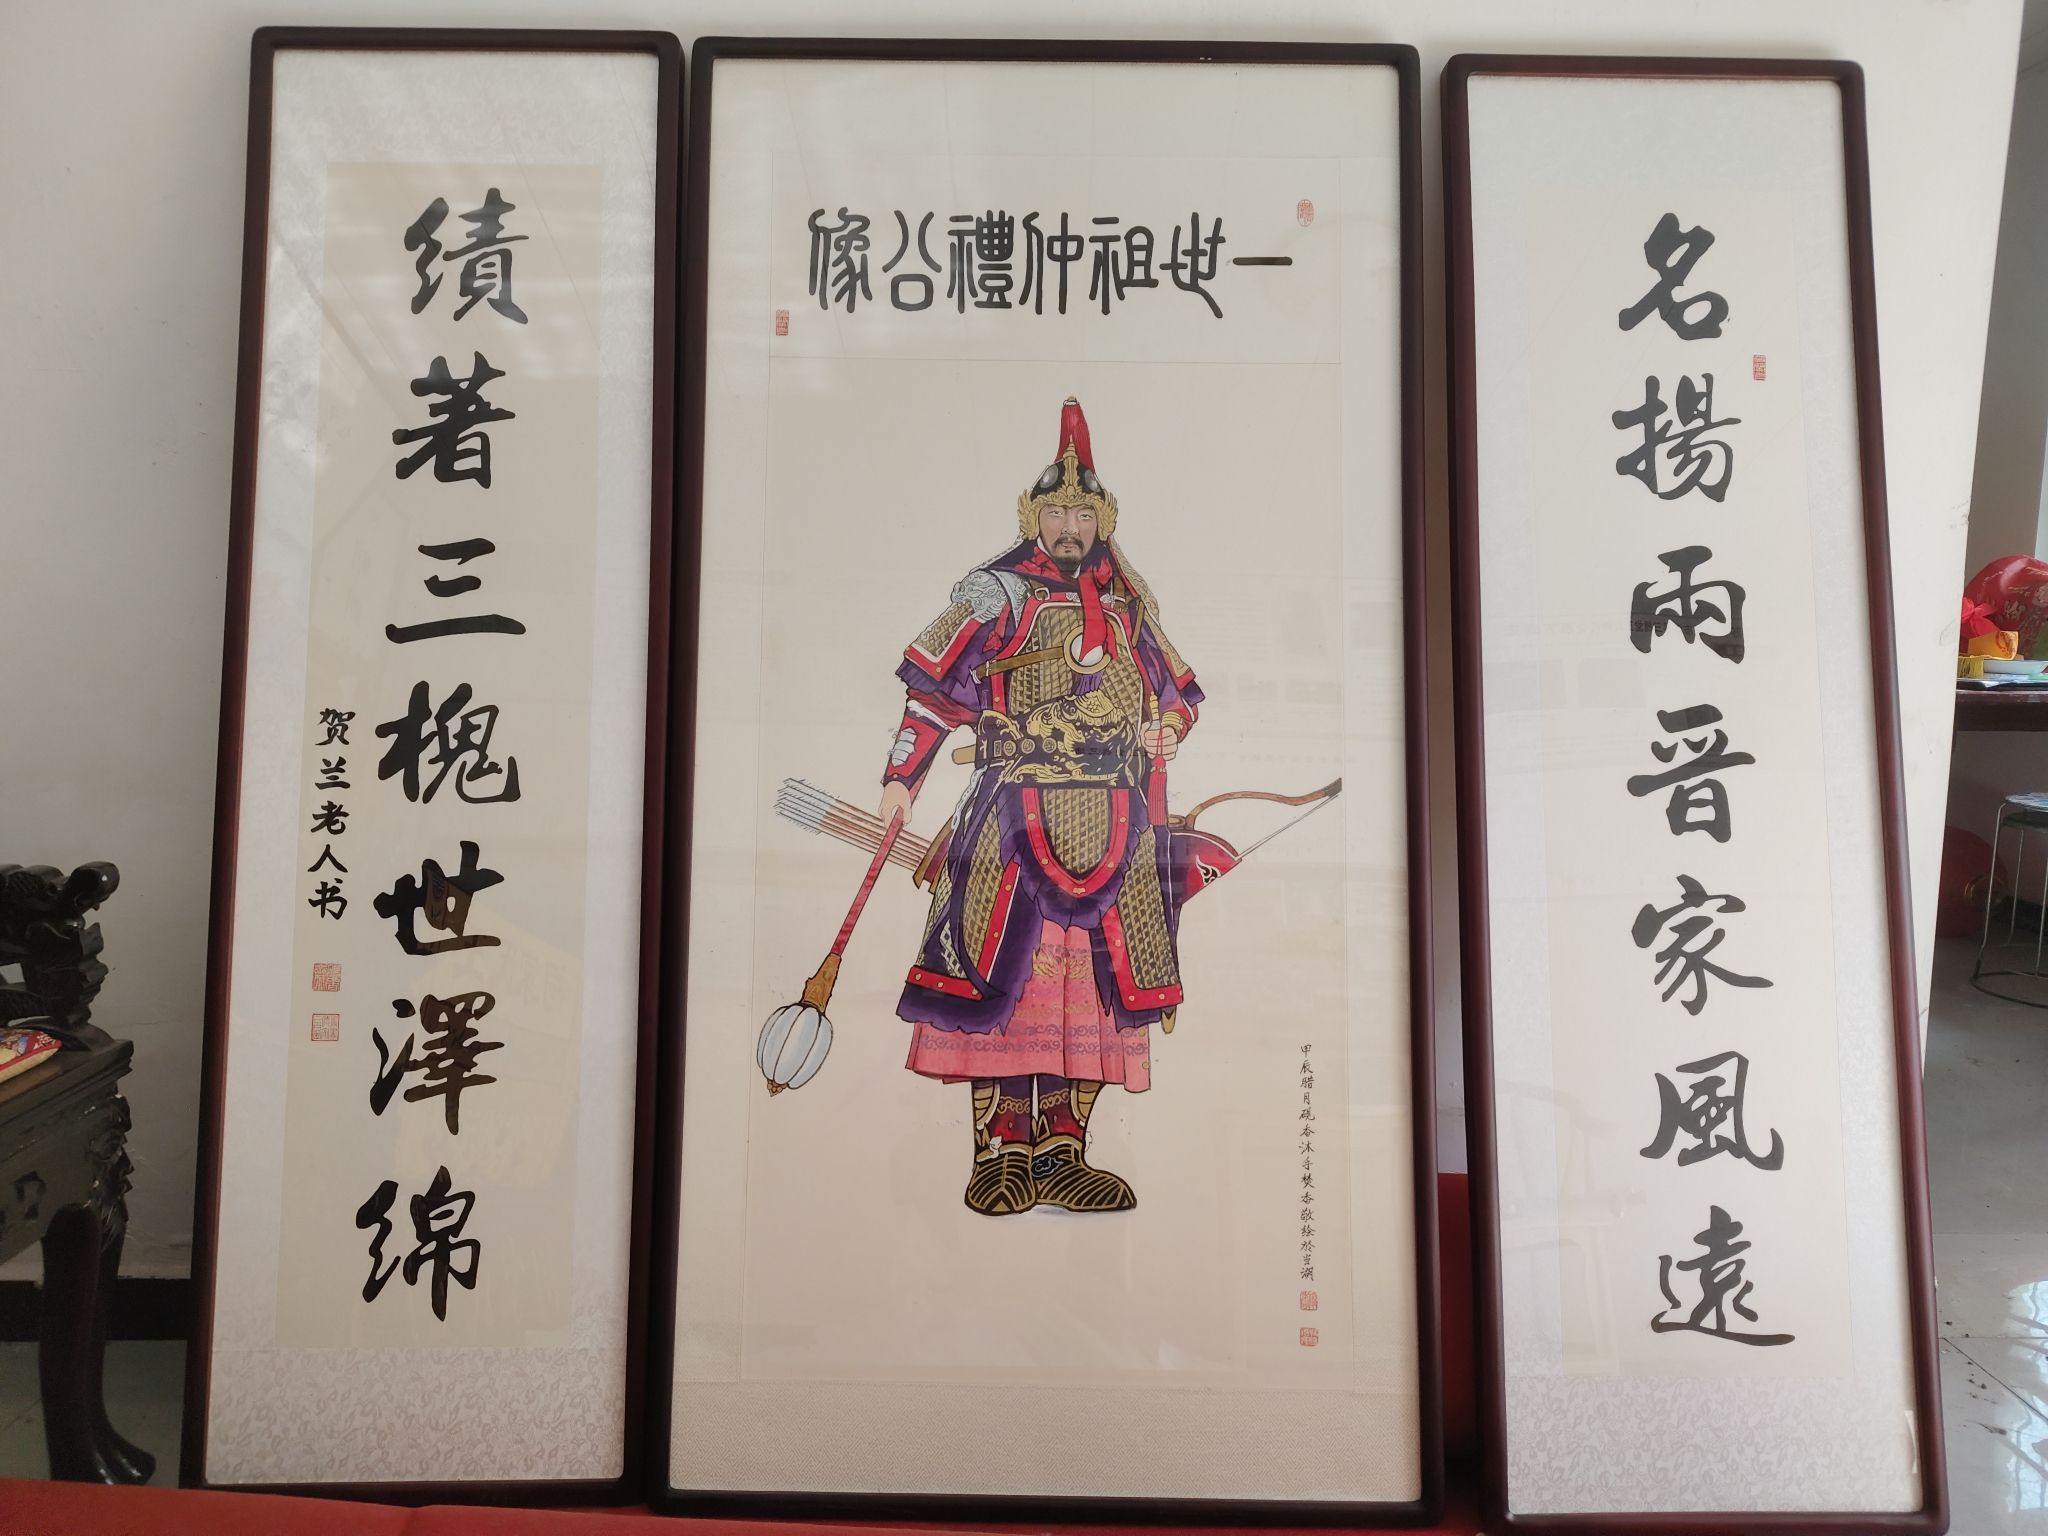 一世祖仲禮公像
名揚兩晋家風遠
績著三槐世澤綿
贺兰老人书
甲辰腊月砚香沐手焚香敬绘於当湖